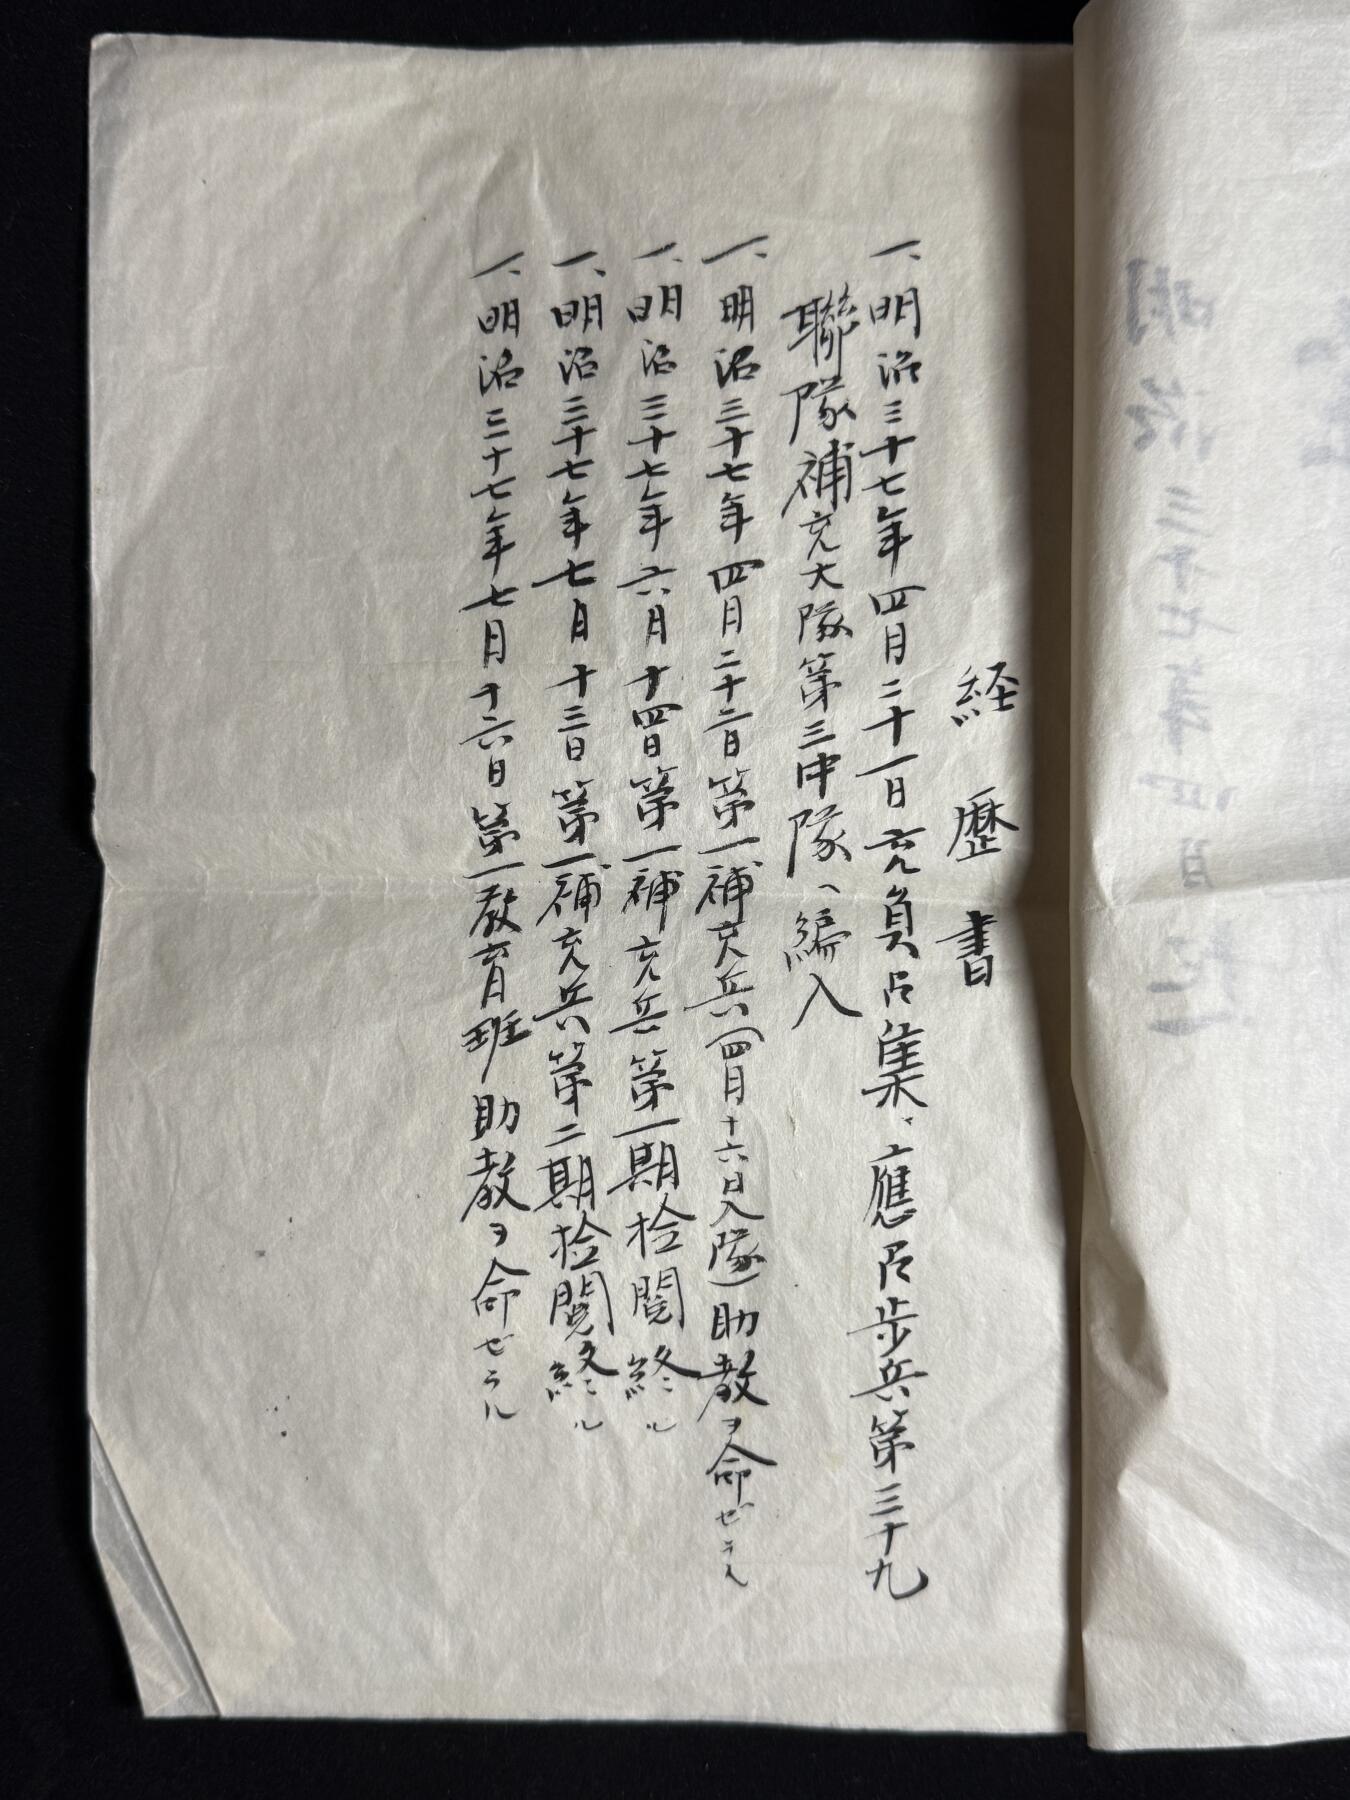 経歴書
一、明治三十七年四月二十一日充員召集ニ應召歩兵第三十九
聯隊補充大隊第三中隊ヘ編入
一、明治三十七年四月二十二日第一補充兵(四月十六日入隊)助教ヲ命ゼラル
一、明治三十七年六月十四日第一補充兵第一期検閲終ル
一、明治三十七年七月十三日第一補充兵第二期検閲終ル
一、明治三十七年七月十六日第一教育班助教ヲ命ゼラル